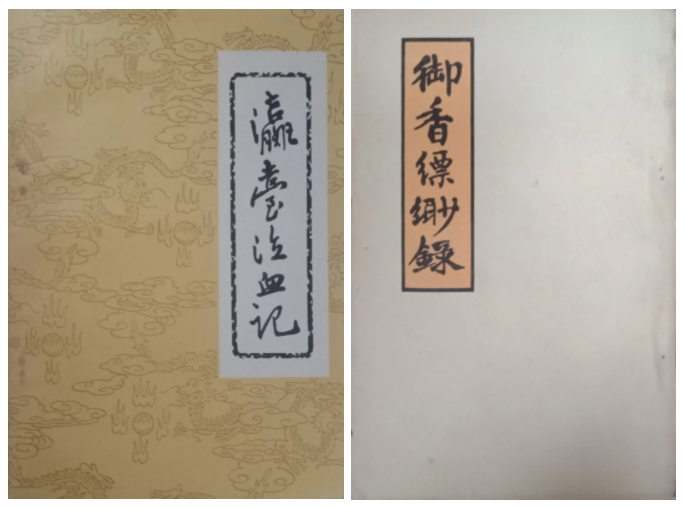 瀛臺泣血记
御香缥缈錄